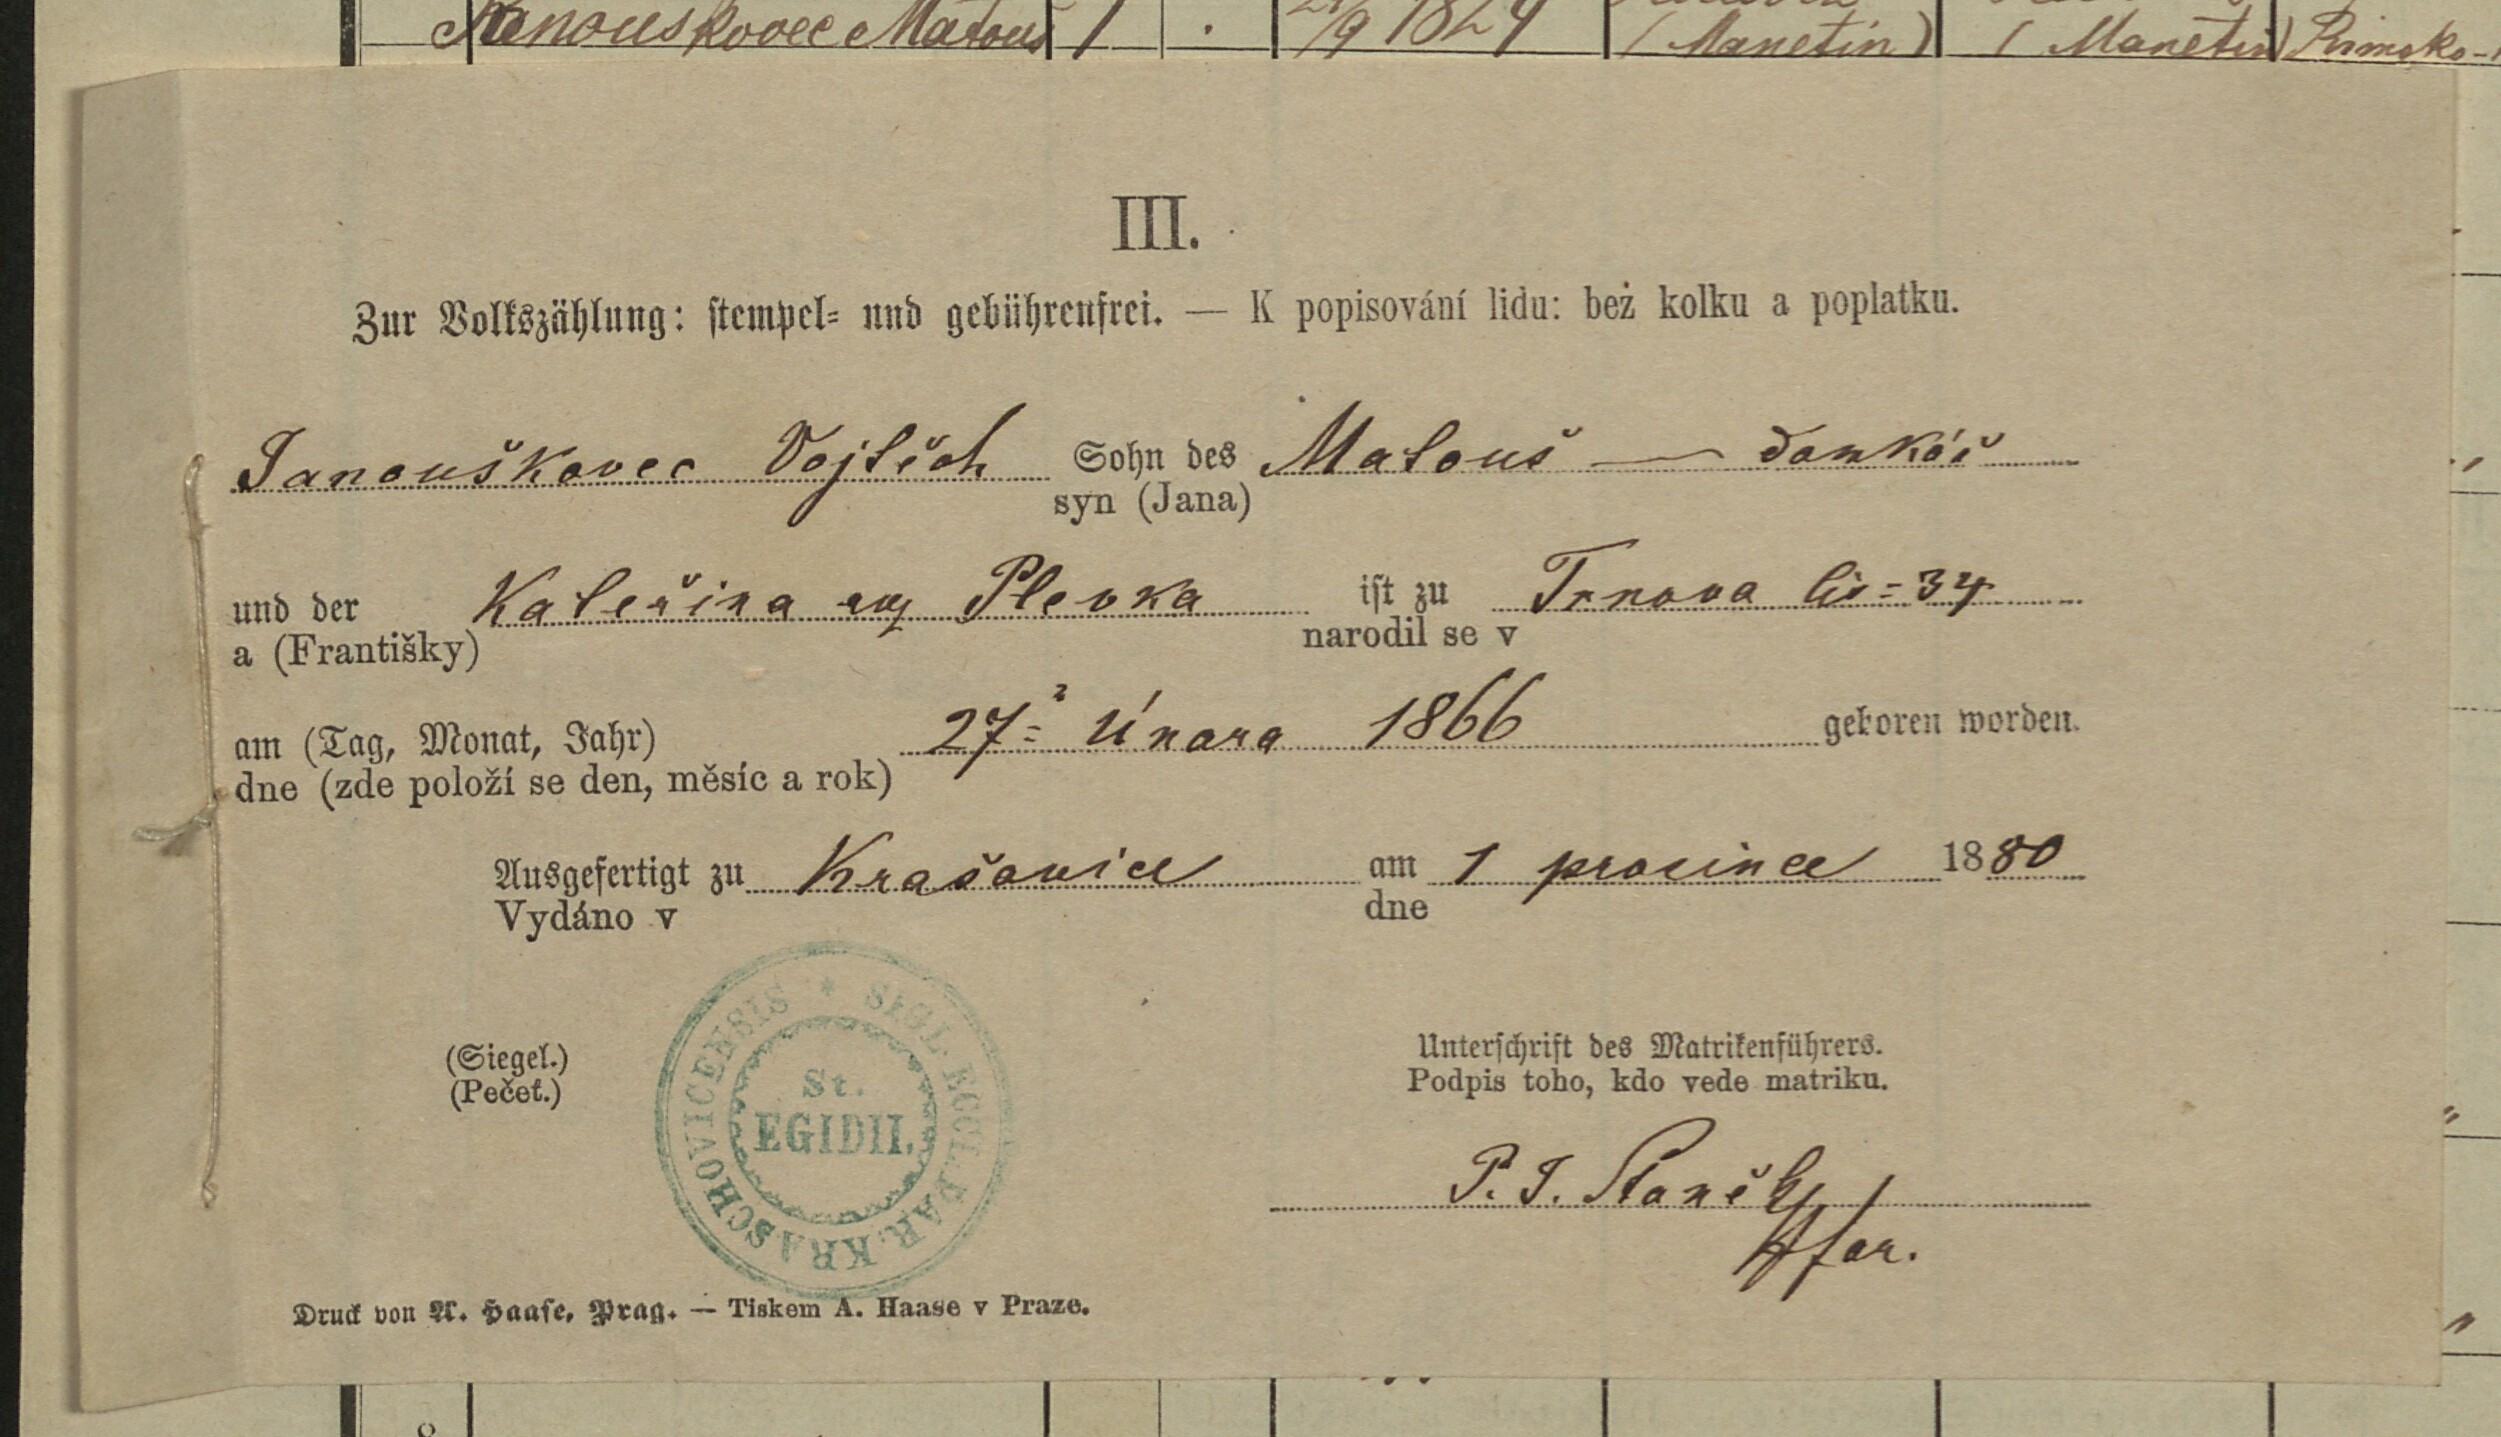 Janouskovec Matouš 1 . 21/9 1824 (Manetin) (Manetin) Římsko-
III.
Zur Volkszählung: stempel- und gebührenfrei. — K popisování lidu: bez kolku a poplatku.
Janouškovec Vojtěch Sohn des Matouš — domkář
syn (Jana)
und der Kateřina roz Plevka ist zu Trnova čis = 34
a (Františky) narodil se v
am (Tag, Monat, Jahr) 27= Února 1866 geboren worden.
dne (zde položí se den, měsíc a rok)
Ausgefertigt zu Krašovice am 1 prosince 1880
Vydáno v dne
(Siegel.)
(Pečeť.)
SIGL. ECCL. PAR. KRASCHOVICENSIS *
St.
EGIDII.
Unterschrift des Matrikenführers.
Podpis toho, kdo vede matriku.
P. J. Staněk
ffar.
Druck von A. Haase, Prag. — Tiskem A. Haase v Praze.